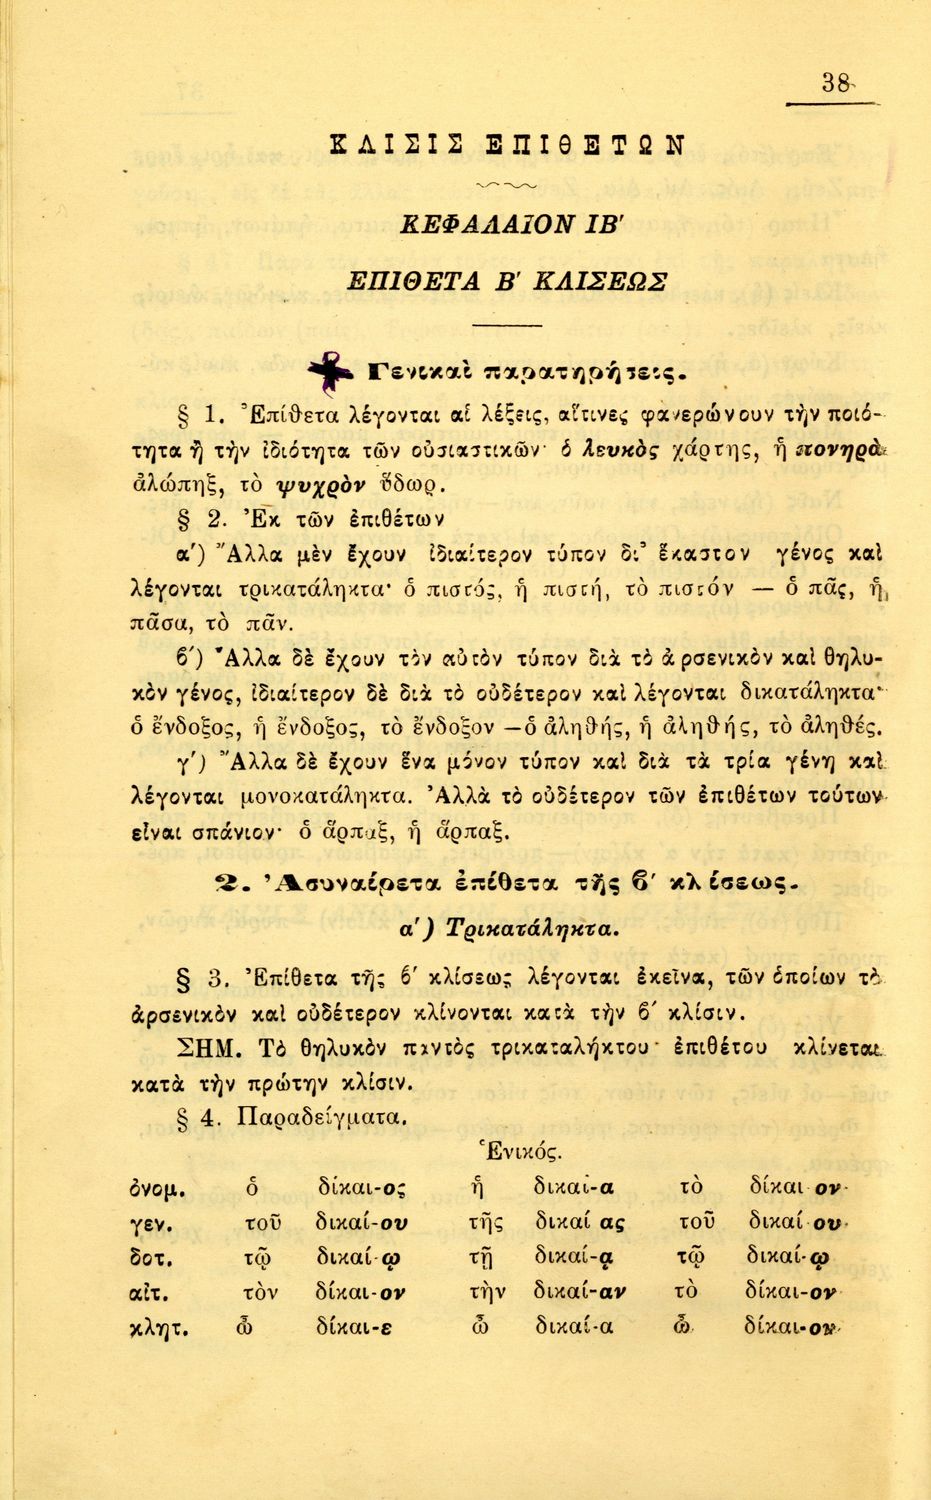 38
ΚΛΙΣΙΣ ΕΠΙΘΕΤΩΝ
ΚΕΦΑΛΑΙΟΝ ΙΒ'
ΕΠΙΘΕΤΑ Β' ΚΛΙΣΕΩΣ
Γενικαὶ παρατηρήσεις.
§ 1. Ἐπίθετα λέγονται αἱ λέξεις, αἵτινες φανερώνουν τὴν ποιό-
τητα ἢ τὴν ἰδιότητα τῶν οὐσιαστικῶν· ὁ λευκὸς χάρτης, ἡ πονηρὰ
ἀλώπηξ, τὸ ψυχρὸν ὕδωρ.
§ 2. Ἐκ τῶν ἐπιθέτων
α') Ἄλλα μὲν ἔχουν ἰδιαίτερον τύπον δι' ἕκαστον γένος καὶ
λέγονται τρικατάληκτα· ὁ πιστός, ἡ πιστή, τὸ πιστόν — ὁ πᾶς, ἡ
πᾶσα, τὸ πᾶν.
β') Ἄλλα δὲ ἔχουν τὸν αὐτὸν τύπον διὰ τὸ ἀρσενικὸν καὶ θηλυ-
κὸν γένος, ἰδιαίτερον δὲ διὰ τὸ οὐδέτερον καὶ λέγονται δικατάληκτα·
ὁ ἔνδοξος, ἡ ἔνδοξος, τὸ ἔνδοξον — ὁ ἀληθής, ἡ ἀληθής, τὸ ἀληθές.
γ') Ἄλλα δὲ ἔχουν ἕνα μόνον τύπον καὶ διὰ τὰ τρία γένη καὶ
λέγονται μονοκατάληκτα. Ἀλλὰ τὸ οὐδέτερον τῶν ἐπιθέτων τούτων
εἶναι σπάνιον· ὁ ἅρπαξ, ἡ ἅρπαξ.
2. Ἀσυναίρετα ἐπίθετα τῆς β' κλίσεως.
α') Τρικατάληκτα.
§ 3. Ἐπίθετα τῆς β' κλίσεως λέγονται ἐκεῖνα, τῶν ὁποίων τὸ
ἀρσενικὸν καὶ οὐδέτερον κλίνονται κατὰ τὴν β' κλίσιν.
ΣΗΜ. Τὸ θηλυκὸν παντὸς τρικαταλήκτου ἐπιθέτου κλίνεται
κατὰ τὴν πρώτην κλίσιν.
§ 4. Παραδείγματα.
Ἑνικός.
ὀνομ. ὁ δίκαι-ος ἡ δικαί-α τὸ δίκαι-ον
γεν. τοῦ δικαί-ου τῆς δικαί ας τοῦ δικαί-ου
δοτ. τῷ δικαί-ῳ τῇ δικαί-ᾳ τῷ δικαί-ῳ
αἰτ. τὸν δίκαι-ον τὴν δικαί-αν τὸ δίκαι-ον
κλητ. ὦ δίκαι-ε ὦ δικαί-α ὦ δίκαι-ον